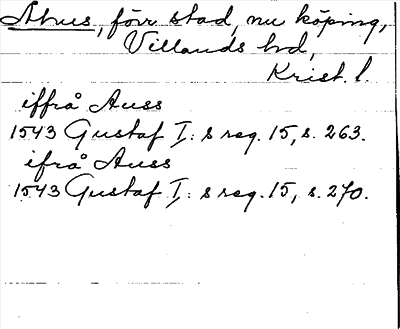 Åhus, förr stad, nu köping,
Villands hd,
Krist. l.
iffrå Auss
1543 Gustaf I:s reg. 15, s. 263.
ifrå Auss
1543 Gustaf I:s reg. 15, s. 270.